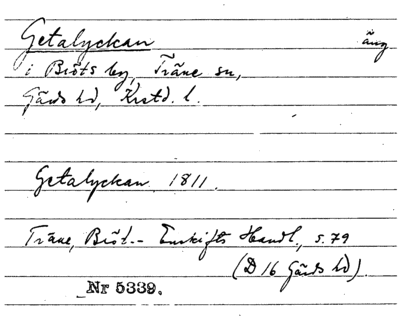 Getalyckan äng
i Bröts by, Träne sn,
Gärds hd, Krstd. l.
Getalyckan 1811.
Träne, Bröt. - Enskifts Handl., s. 79
(D 16 Gärds hd).
Nr 5339.